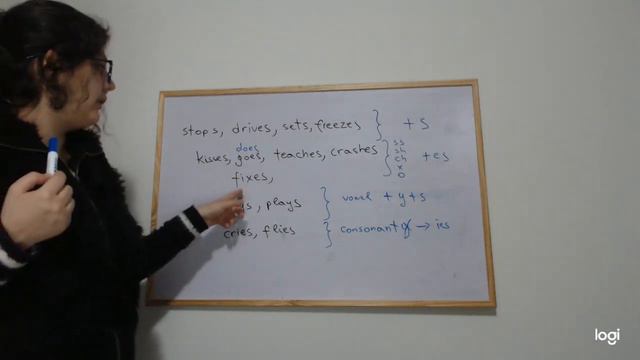 stops, drives, sets, freezes } + s
does
kisses, goes, teaches, crashes
fixes,
ss
sh
ch
x
o
+ es
, plays } vowel + y + s
cries, flies } consonant y → ies
logi